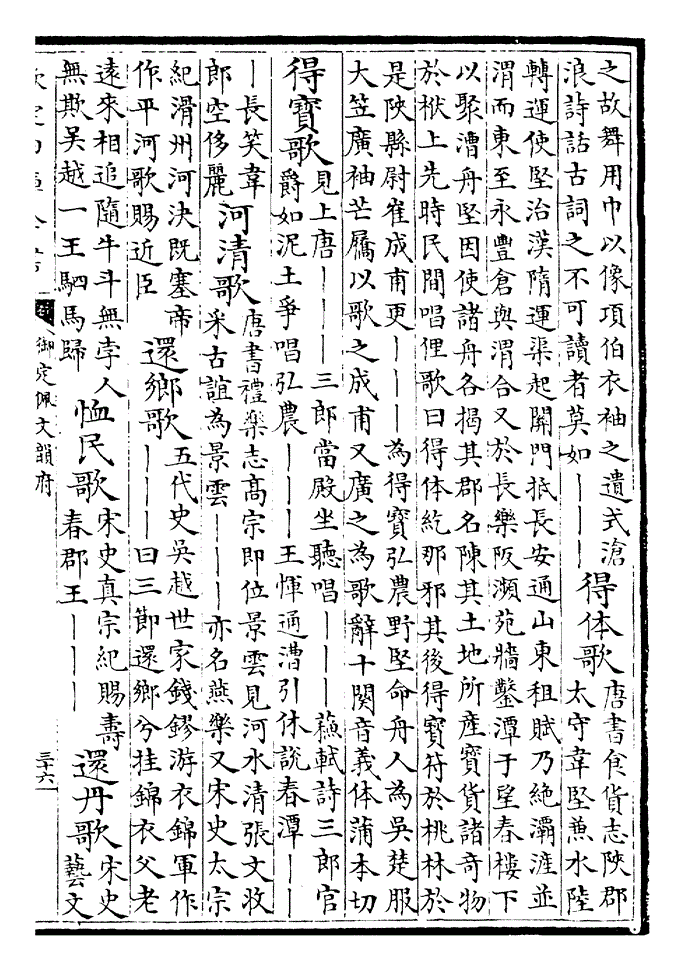 之故舞用巾以像項伯衣袖之遺式滄
浪詩話古詞之不可讀者莫如丨丨丨
得体歌
唐書食貨志陝郡
太守韋堅兼水陸
轉運使堅治漢隋運渠起關門抵長安通山東租賦乃絕灞滻並
渭而東至永豐倉與渭合又於長樂阪瀕苑牆鑿潭于望春樓下
以聚漕舟堅因使諸舟各揭其郡名陳其土地所產寶貨諸奇物
於栿上先時民間唱俚歌曰得体紇那邪其後得寶符於桃林於
是陝縣尉崔成甫更丨丨丨為得寶弘農野堅命舟人為吳楚服
大笠廣袖芒屩以歌之成甫又廣之為歌辭十闋音義体蒲本切
得寶歌
見上唐丨丨丨丨三郎當殿坐聽唱丨丨丨蘓軾詩三郎官
爵如泥土爭唱弘農丨丨丨王惲通漕引休說春潭丨丨
丨長笑韋
郎空侈麗
河清歌
唐書禮樂志高宗即位景雲見河水清張文收
采古誼為景雲丨丨丨丨亦名燕樂又宋史太宗
紀滑州河決既塞帝
作平河歌賜近臣
還鄉歌
五代史吳越世家錢鏐游衣錦軍作
丨丨丨曰三節還鄉兮挂錦衣父老
遠來相追隨牛斗無孛人
無欺吳越一王駟馬歸
恤民歌
宋史真宗紀賜壽
春郡王丨丨丨
還丹歌
宋史
藝文
御定佩文韻府
三十六